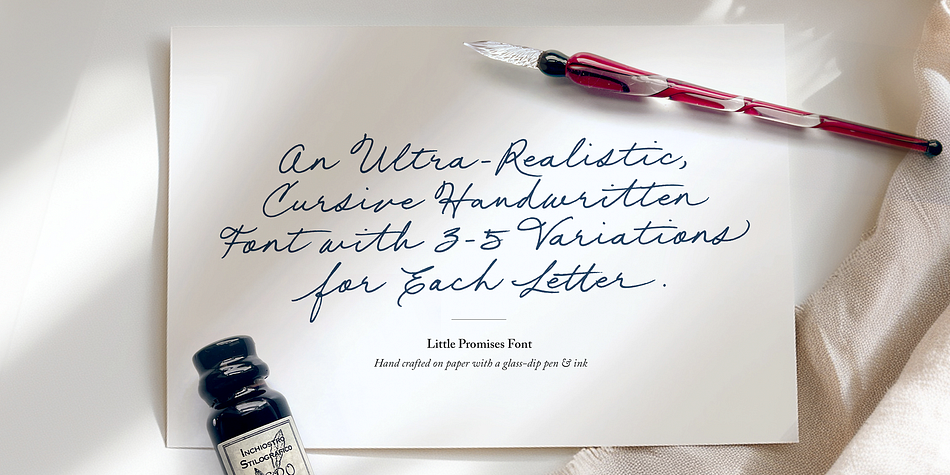 An Ultra-Realistic,
Cursive Handwritten
Font with 3-5 Variations
for Each Letter.
Little Promises Font
Hand crafted on paper with a glass-dip pen & ink
INCHIOSTRO
STILOGRAFICO